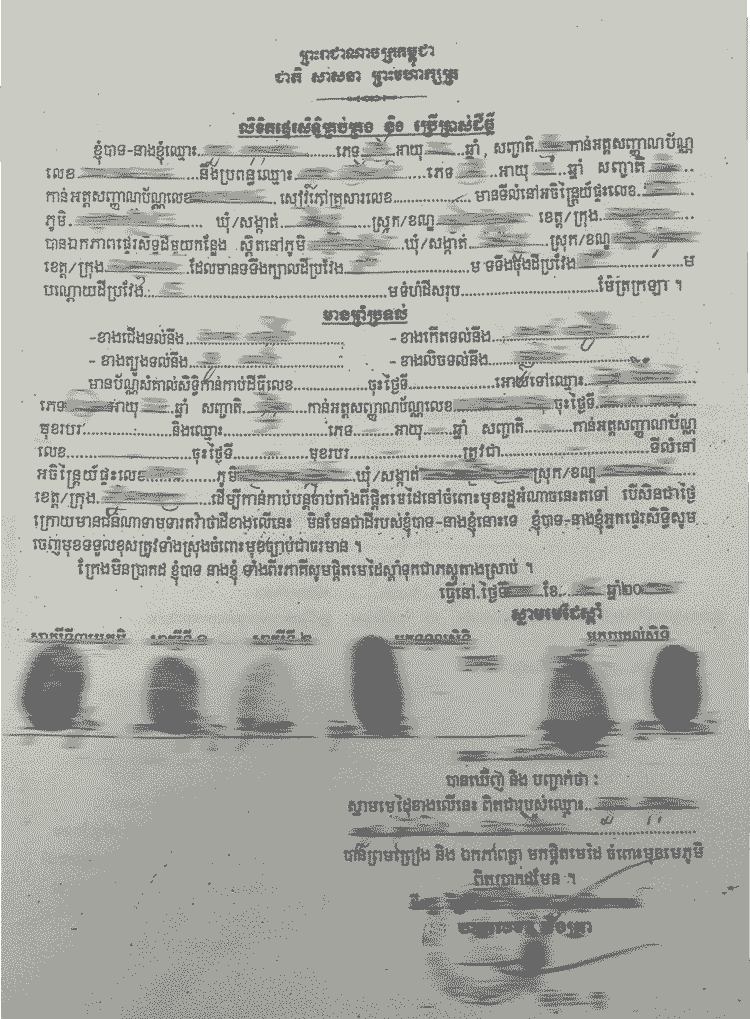 ព្រះរាជាណាចក្រកម្ពុជា
ជាតិ សាសនា ព្រះមហាក្សត្រ
លិខិតផ្ទេរសិទ្ធិគ្រប់គ្រង និង ប្រើប្រាស់ដីធ្លី
ខ្ញុំបាទ-នាងខ្ញុំឈ្មោះ..........ភេទ......អាយុ......ឆ្នាំ , សញ្ជាតិ......កាន់អត្តសញ្ញាណប័ណ្ណ
លេខ..........និងប្រពន្ធឈ្មោះ..........ភេទ......អាយុ......ឆ្នាំ សញ្ជាតិ......
កាន់អត្តសញ្ញាណប័ណ្ណលេខ.......... សៀវភៅគ្រួសារលេខ.......... មានទីលំនៅអចិន្ត្រៃយ៍ផ្ទះលេខ......
ភូមិ.......... ឃុំ/សង្កាត់..........ស្រុក/ខណ្ឌ.......... ខេត្ត/ក្រុង..........
បានឯកភាពផ្ទេរសិទ្ធដីមួយកន្លែង ស្ថិតនៅភូមិ..........ឃុំ/សង្កាត់..........ស្រុក/ខណ្ឌ..........
ខេត្ត/ក្រុង..........ដែលមានទទឹងក្បាលដីប្រវែង..........ម ទទឹងចុងដីប្រវែង..........ម
បណ្តោយដីប្រវែង..........មទំហំដីសរុប..........ម៉ែត្រក្រឡា ។
មានព្រំប្រទល់
-ខាងជើងទល់នឹង.......... - ខាងកើតទល់នឹង..........
- ខាងត្បូងទល់នឹង.......... - ខាងលិចទល់នឹង..........
មានប័ណ្ណសំគាល់សិទ្ធិកាន់កាប់ដីធ្លីលេខ..........ចុះថ្ងៃទី..........អោយទៅឈ្មោះ..........
ភេទ......អាយុ......ឆ្នាំ សញ្ជាតិ......កាន់អត្តសញ្ញាណប័ណ្ណលេខ..........ចុះថ្ងៃទី..........
មុខរបរ..........និងឈ្មោះ..........ភេទ......អាយុ......ឆ្នាំ សញ្ជាតិ......កាន់អត្តសញ្ញាណប័ណ្ណ
លេខ..........ចុះថ្ងៃទី..........មុខរបរ..........ត្រូវជា..........ទីលំនៅ
អចិន្ត្រៃយ៍ផ្ទះលេខ..........ភូមិ..........ឃុំ/សង្កាត់..........ស្រុក/ខណ្ឌ..........
ខេត្ត/ក្រុង..........ដើម្បីកាន់កាប់បន្តចាប់តាំងពីផ្តិតមេដៃនៅចំពោះមុខរដ្ឋអំណាចនេះតទៅ បើសិនជាថ្ងៃ
ក្រោយមានជនណាទាមទារតវ៉ាថាដីខាងលើនេះ មិនមែនជាដីរបស់ខ្ញុំបាទ-នាងខ្ញុំនោះទេ ខ្ញុំបាទ-នាងខ្ញុំអ្នកផ្ទេរសិទ្ធិសូម
ចេញមុខទទួលខុសត្រូវទាំងស្រុងចំពោះមុខច្បាប់ជាធរមាន ។
ក្រែងមិនប្រាកដ ខ្ញុំបាទ នាងខ្ញុំ ទាំងពីរភាគីសូមផ្តិតមេដៃស្តាំទុកជាភស្តុតាងស្រាប់ ។
ធ្វើនៅ.ថ្ងៃទី......ខែ......ឆ្នាំ២០......
ស្នាមមេដៃស្តាំ
សាក្សីទី១មេភូមិ សាក្សីទី ១ សាក្សីទី ២ អ្នកទទួលសិទ្ធិ អ្នកប្រគល់សិទ្ធិ
បានឃើញ និង បញ្ជាក់ថា :
ស្នាមមេដៃខាងលើនេះ ពិតជារបស់ឈ្មោះ..........
បានព្រមព្រៀង និង ឯកភាពគ្នា មកផ្តិតមេដៃ ចំពោះមុខមេភូមិ
ពិតប្រាកដមែន ។